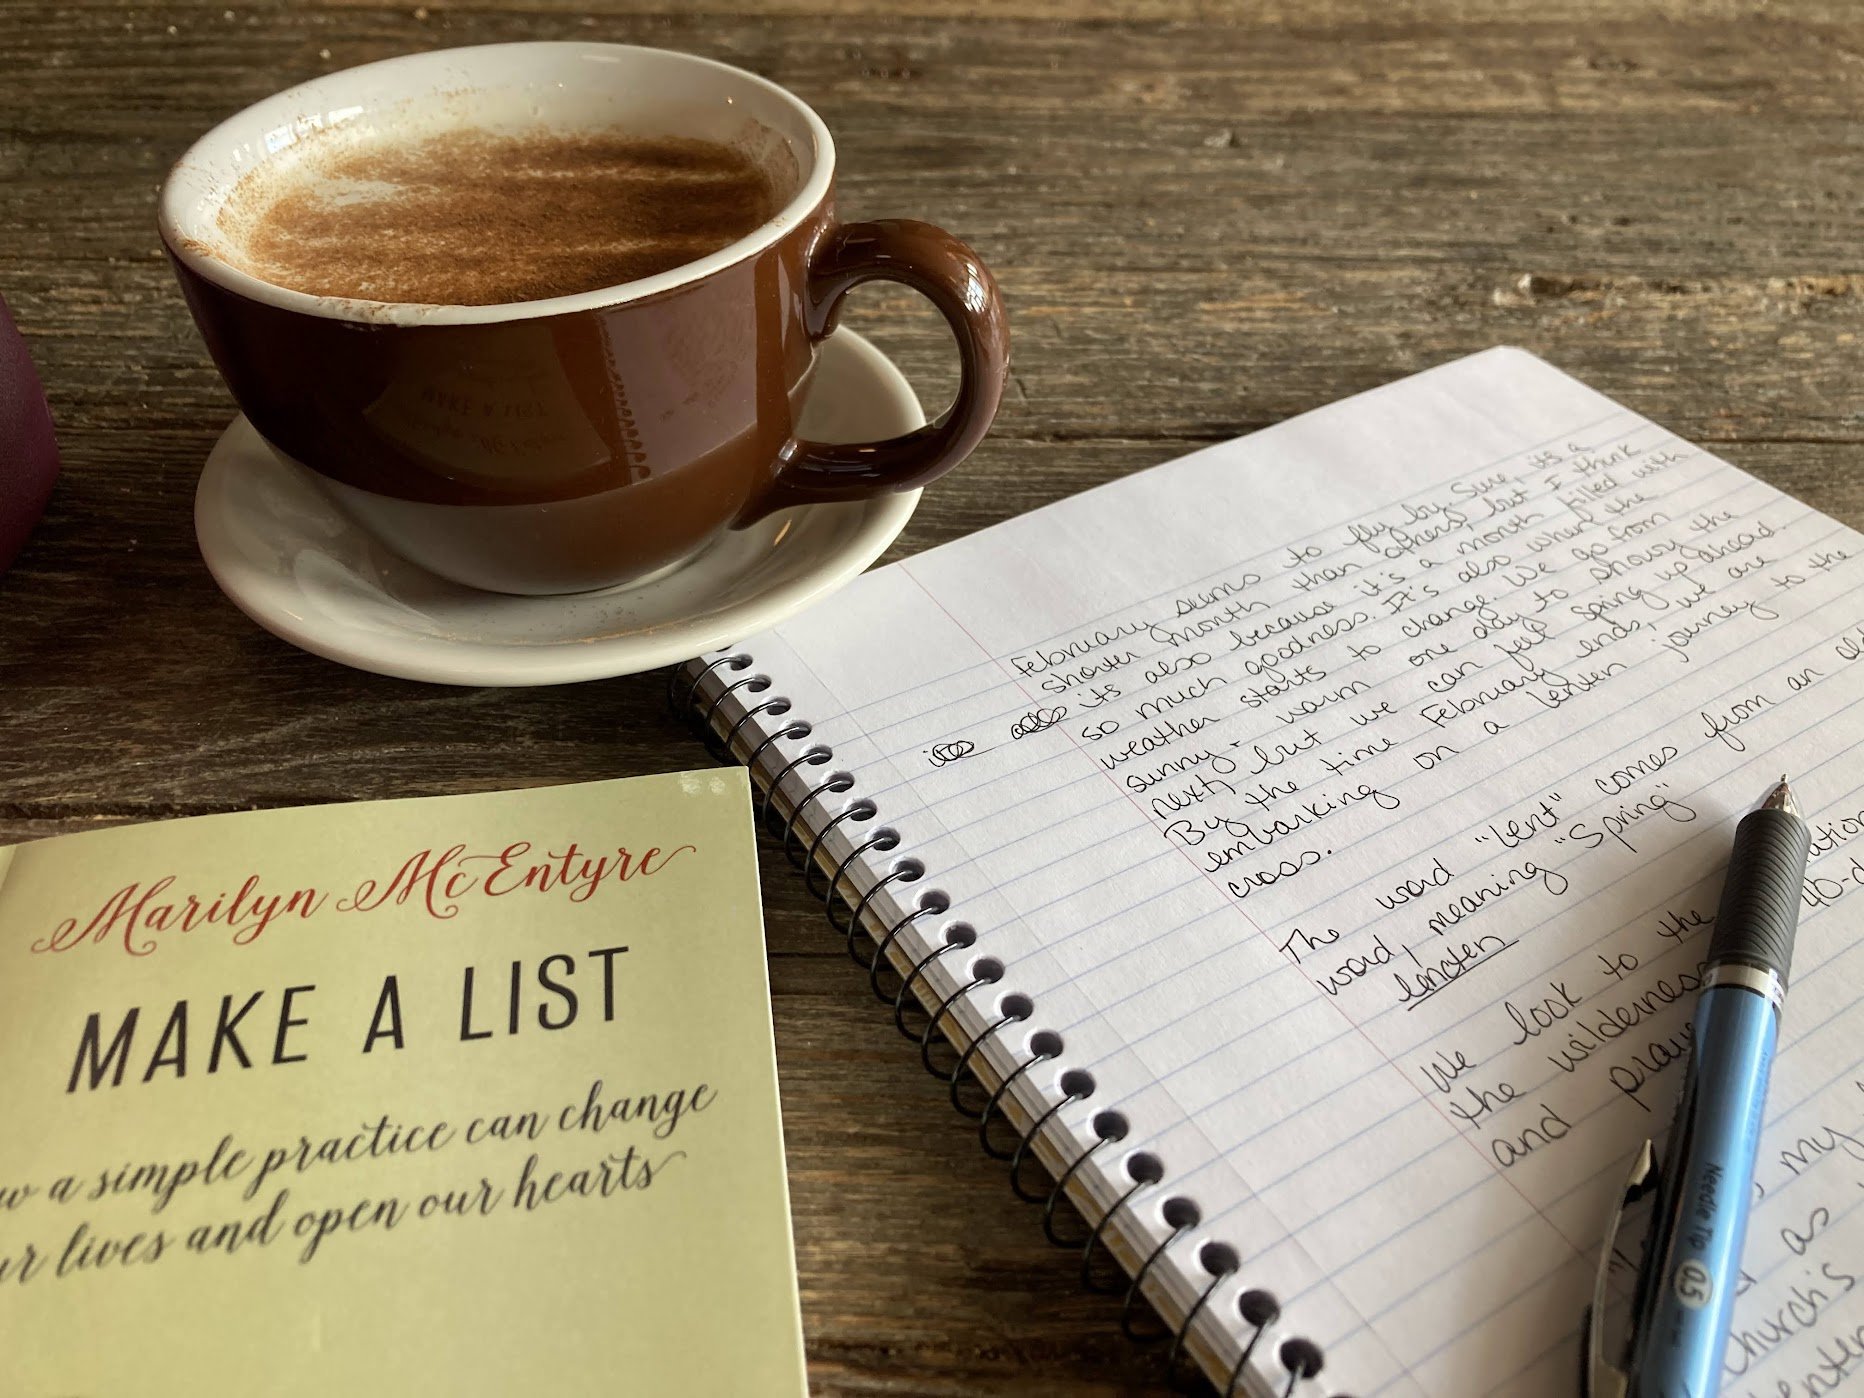 Marilyn McEntyre
MAKE A LIST
a simple practice can change
lives and open our hearts
February seems to fly by. Sure, it's a
shorter month than others, but I think
its also because it's a month filled with
so much goodness. It's also when the
weather starts to change. We go from
sunny - warm one day to snowy the
next, but we can feel Spring up ahead.
By the time February ends, we are
embarking on a lenten journey to the
cross.
The word "lent" comes from an
word, meaning "Spring"
lencten
We look to the
the wilderness 40-d
and
my
as
church's
Needle Tip 0.5